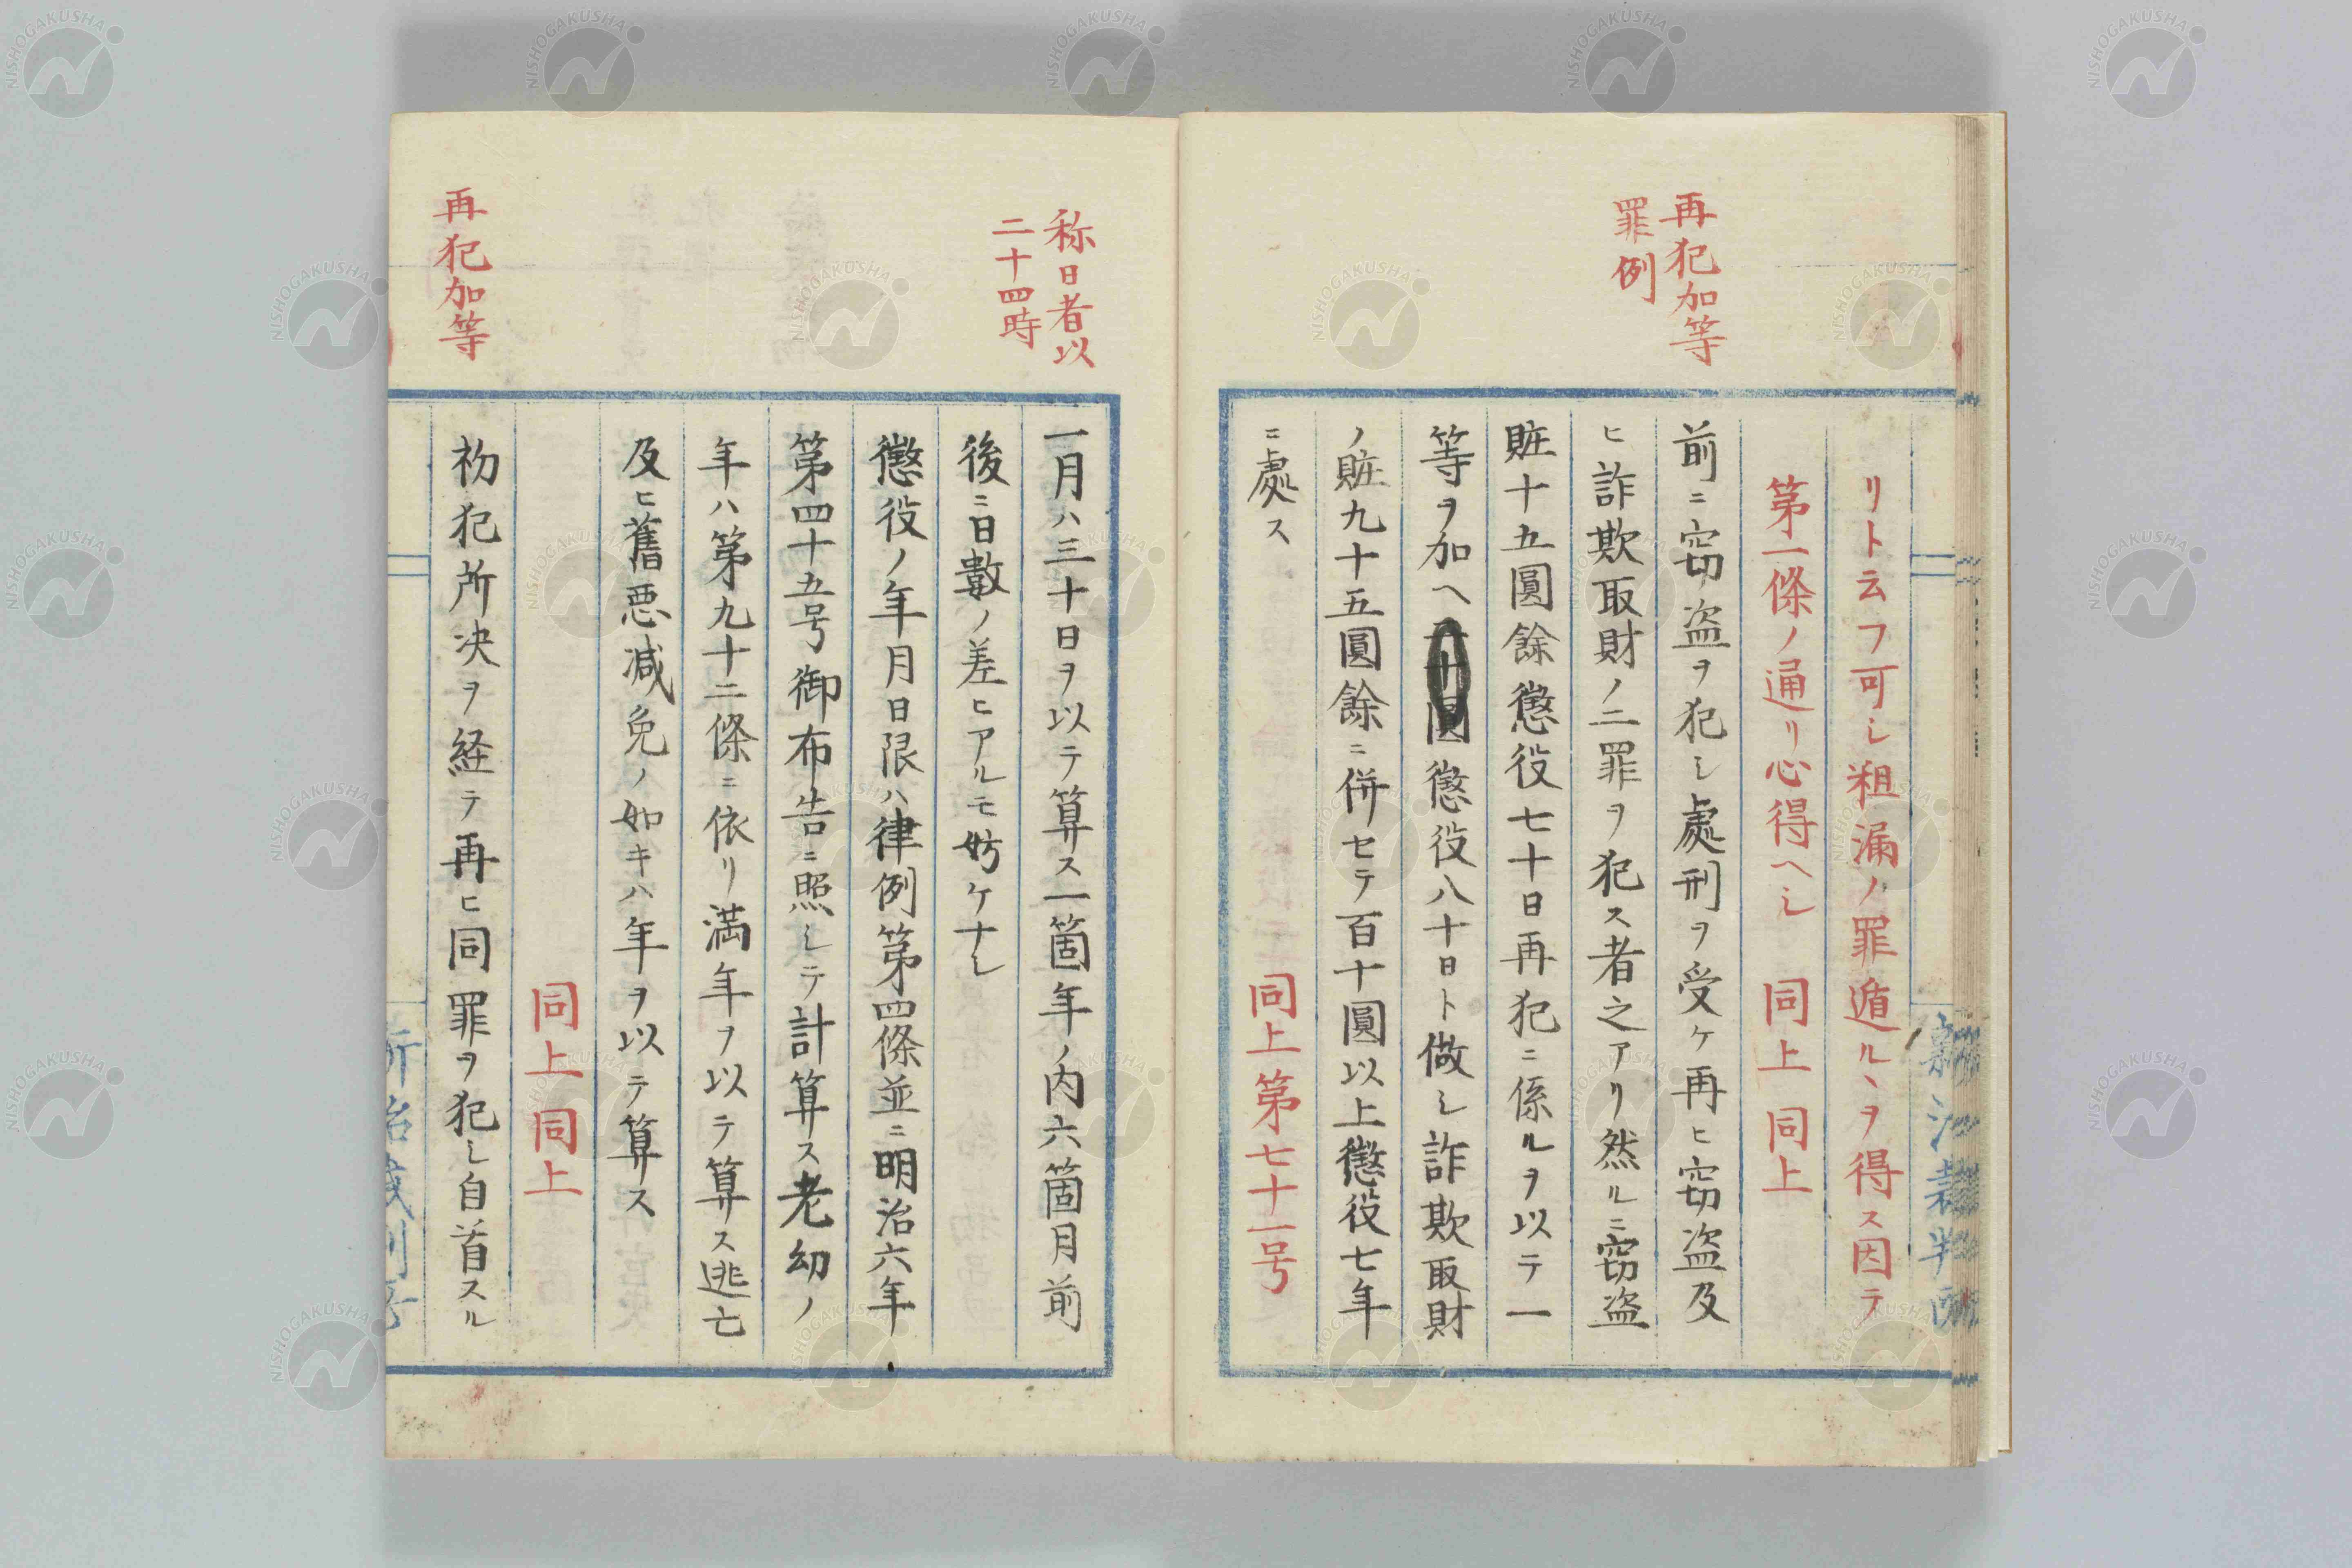 再犯加等
罪例
リト云フ可シ粗漏ノ罪遁ルヽヲ得ス因テ
第一條ノ通リ心得ヘシ 同上 同上
前ニ窃盗ヲ犯シ處刑ヲ受ケ再ヒ窃盗及
ヒ詐欺取財ノ二罪ヲ犯ス者之アリ然ルニ窃盗
賍十五圓餘懲役七十日再犯ニ係ルヲ以テ一
等ヲ加ヘ圓懲役八十日ト做シ詐欺取財
ノ賍九十五圓餘ニ併セテ百十圓以上懲役七年
ニ處ス
同上第七十一号
称日者以
二十四時
一月ハ三十日ヲ以テ算ス一箇年ノ内六箇月前
後ニ日數ノ差ヒアルモ妨ケナシ
懲役ノ年月日限ハ律例第四條並ニ明治六年
第四十五号御布告ニ照シテ計算ス老幼ノ
年ハ第九十二條ニ依リ満年ヲ以テ算ス逃亡
及ヒ舊悪减免ノ如キハ年ヲ以テ算ス
同上同上
再犯加等
初犯所决ヲ経テ再ヒ同罪ヲ犯シ自首スル